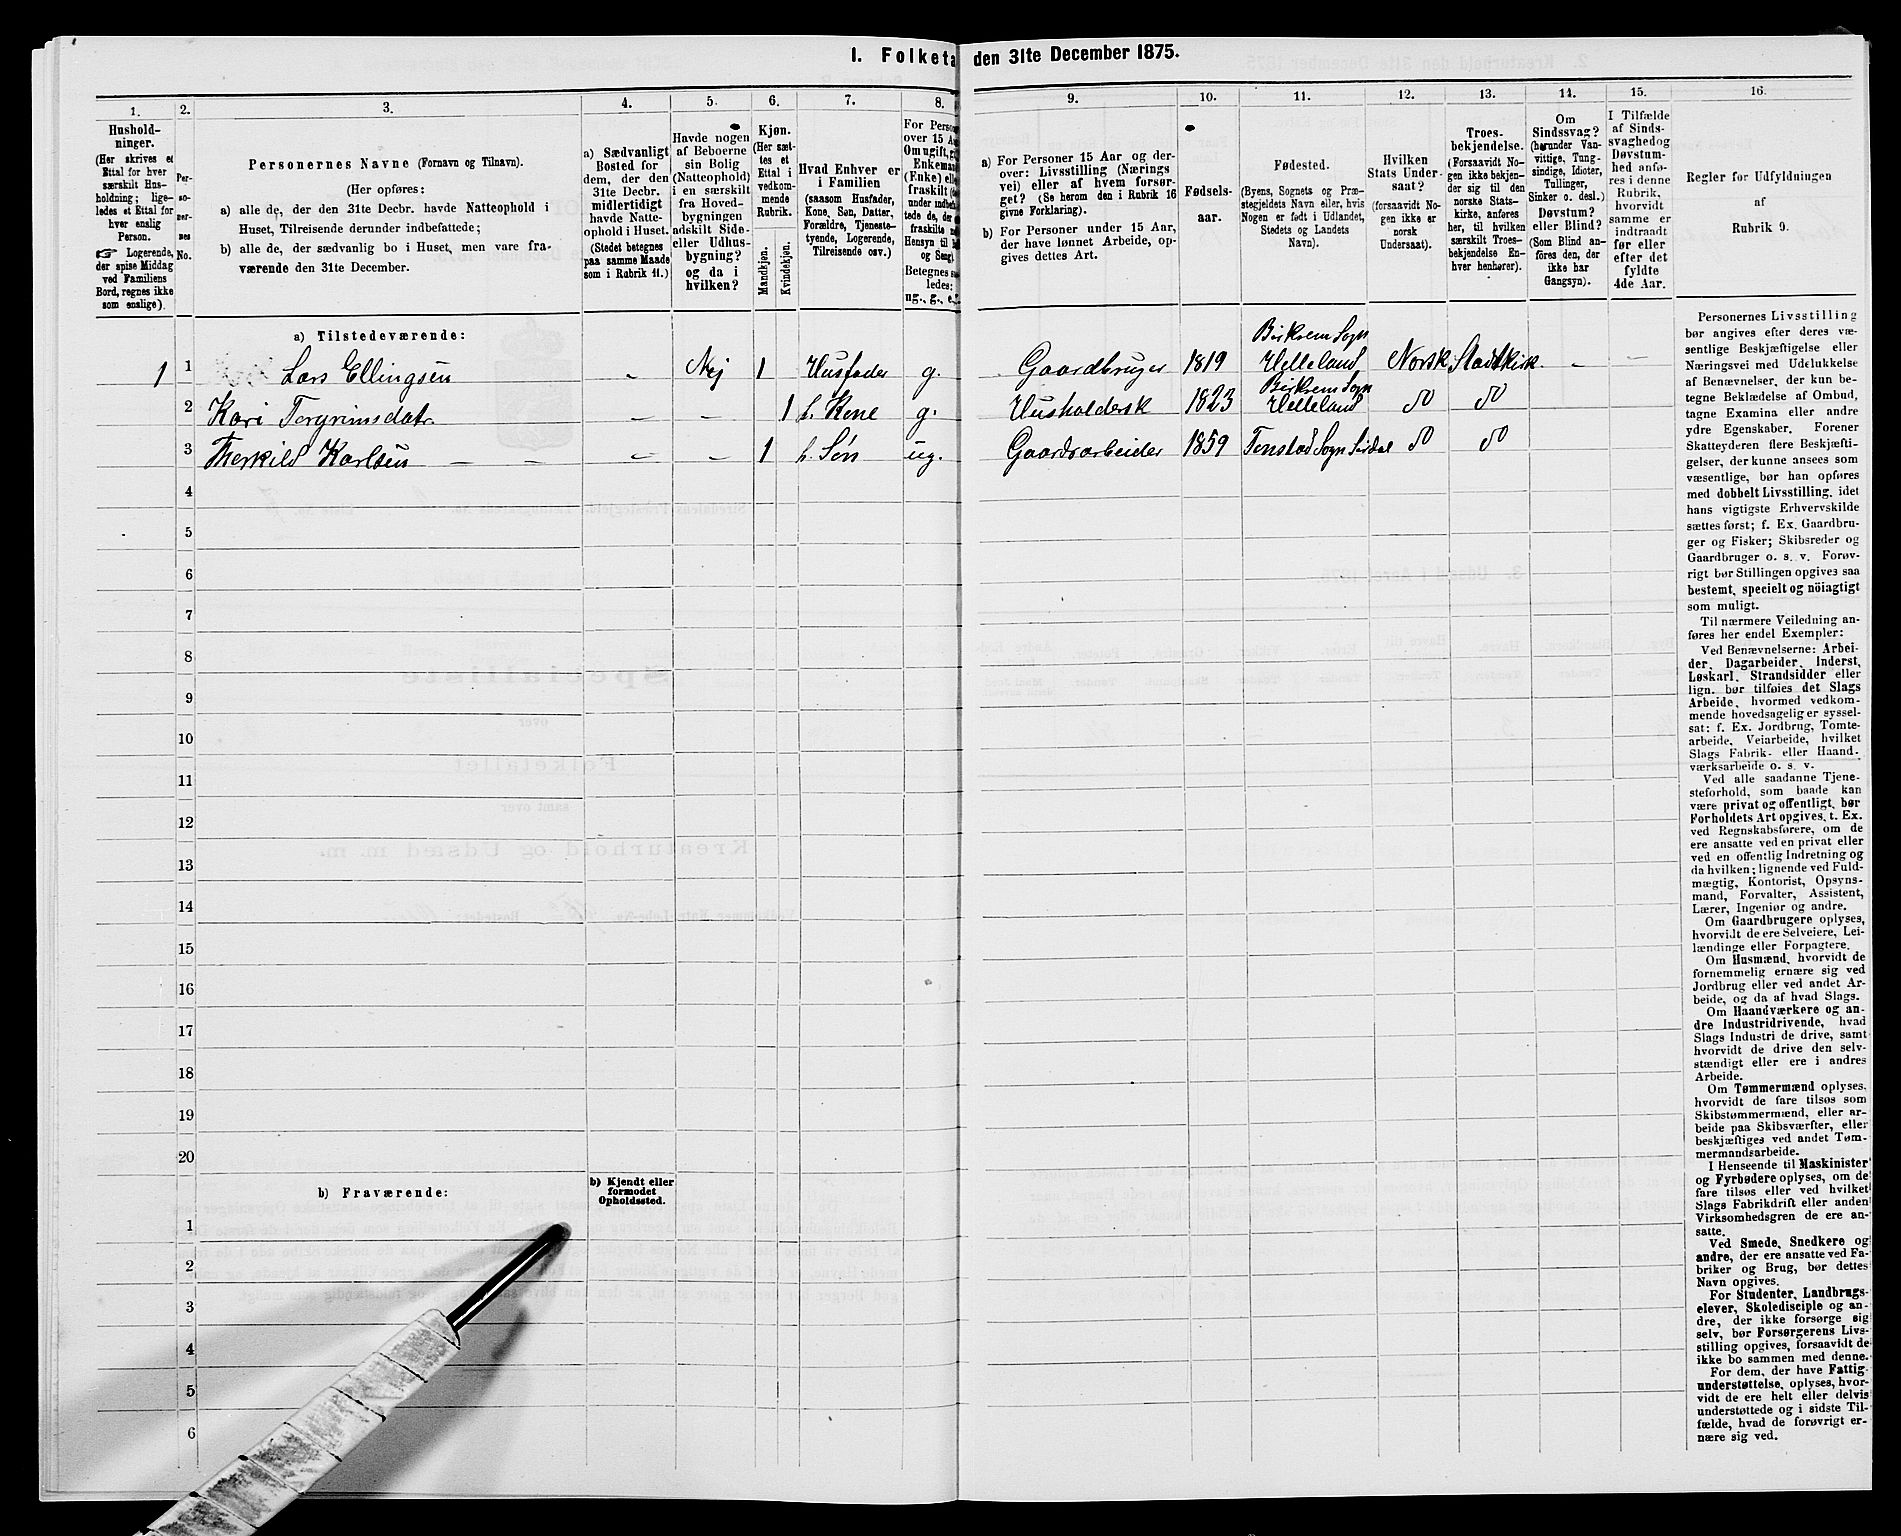 I. Folketa den 31te December 1875.
1. 2. 3. 4. 5. 6. 7. 8. 9. 10. 11. 12. 13. 14. 15. 16.
Hushold-
ninger.
(Her skrives et
Ettal for hver
særskilt Hus-
holdning; lige-
ledes et Ettal for
hver enslig
Person.
☞ Logerende,
der spise Middag
ved Familiens
Bord, regnes ikke
som enslige).
Per-
so-
ner-
nes
No.
Personernes Navne (Fornavn og Tilnavn).
(Her opføres:
a) alle de, der den 31te Decbr. havde Natteophold i
Huset, Tilreisende derunder indbefattede;
b) alle de, der sædvanlig bo i Huset, men vare fra-
værende den 31te December.
a) Sædvanligt
Bosted for
dem, der den
31te Decbr.
midlertidigt
havde Natte-
ophold i Huset.
(Stedet betegnes
paa samme Maade
som i Rubrik 11.)
Havde nogen
af Beboerne
sin Bolig
(Natteophold)
i en særskilt
fra Hoved-
bygningen
adskilt Side-
eller Udhus-
bygning?
og da i
hvilken?
Kjøn.
(Her sæt-
tes et
Ettal i
vedkom-
mende
Rubrik.
Mandkjøn.
Kvindekjøn.
Hvad Enhver er
i Familien
(saasom Husfader,
Kone, Søn, Datter,
Forældre, Tjeneste-
tyende, Logerende,
Tilreisende osv.)
For Person
over 15 Aa
Om ugift, g
Enkeman
(Enke) ell
fraskilt
under indbe
tede de, der
fraskilte
Hensyn til B
og Seng).
Betegnes s
ledes:
ug., g., e.,
a) For Personer 15 Aar og der-
over: Livsstilling (Nærings
vei) eller af hvem forsør-
get? (Se herom den i Rubrik 16
givne Forklaring).
b) For Personer under 15 Aar,
der have lønnet Arbeide, op-
gives dettes Art.
Fødsels-
aar.
Fødested.
(Byens, Sognets og Præ-
stegjeldets Navn eller, hvis
Nogen er født i Udlandet,
Stedets og Landets
Navn).
Hvilken
Stats Under-
saat?
(forsaavidt No-
gen ikke er
norsk
Undersaat).
Troes-
bekjendelse.
(Forsaavidt No-
gen ikke bekjen-
der sig til den
norske Stats-
kirke, anføres
her, til hvilken
særskilt Troes-
bekjendelse En-
hver henhører).
Om
Sindssvag?
(herunder Van-
vittige, Tung-
sindige, Idioter,
Tullinger,
Sinker o. desl.)
Døvstum?
eller Blind?
(Som Blind an-
føres den, der
ikke har
Gangsyn).
I Tilfælde
af Sinds-
svaghed og
Døvstum-
hed anfø-
res i denne
Rubrik,
hvorvidt
samme er
indtraadt
før eller
efter det
fyldte
4de Aar.
Regler for Udfyldningen
af
Rubrik 9.
a) Tilstedeværende:
1 1 Lars Ellingsen - Nej 1 Husfader g. Gaardbruger 1819 Birkrem Sogn Helleland Norsk Statskirk. - -
2 Kari Torgrimsdatr. - - 1 h. Kone g. Husholdersk 1823 Birkrem Sogn Helleland do do
3 Therkild Karlsen - - - - 1 h. Søn ug. Gaardsarbeider 1859 Tonstad Sogn Sirdal do do
4
5
6
7
8
9
10
11
12
13
14
15
16
17
18
19
20
b) Fraværende:
b) Kjendt eller
formodet
Opholdssted.
1
2
3
4
5
6
Personernes Livsstilling
bør angives efter deres væ-
sentlige Beskjæftigelse eller
Næringsvei med Udelukkelse
af Benævnelser, der kun be-
tegne Beklædelse af Ombud,
tagne Examina eller andre
ydre Egenskaber. Forener
Skatteyderen flere Beskjæfti-
gelser, der kunne ansees som
væsentlige, bør han opføres
med dobbelt Livsstilling, idet
hans vigtigste Erhvervskilde
sættes først; f. Ex. Gaardbru-
ger og Fisker; Skibsreder og
Gaardbruger o. s. v. Forøv-
rigt bør Stillingen opgives saa
bestemt, specielt og nöiagtigt
som muligt.
Til nærmere Veiledning an-
føres her endel Exempler:
Ved Benævnelserne: Arbei-
der, Dagarbeider, Inderst,
Løskarl, Strandsidder eller
lign. bør tilføies det Slags
Arbeide, hvormed vedkom-
mende hovedsagelig er syssel-
sat: f. Ex. Jordbrug, Tomte-
arbeide, Veiarbeide, hvilket
Slags Fabrik- eller Haand-
værksarbeide o. s. v.
Ved alle saadanne Tjene-
steforhold, som baade kan
være privat og offentligt, bør
Forholdets Art opgives, t. Ex.
ved Regnskabsførere, om de
ere ansatte ved en privat eller
ved en offentlig Indretning og
da hvilken; lignende ved Fuld-
mægtig, Kontorist, Opsyns-
mand, Forvalter, Assistent,
Lærer, Ingeniør og andre.
Om Gaardbrugere oplyses,
hvorvidt de ere Selveiere, Lei-
lændinge eller Forpagtere.
Om Husmænd, hvorvidt de
fornemmelig ernære sig ved
Jordbrug eller ved andet Ar-
beide, og da af hvad Slags.
Om Haandværkere og an-
dre Industridrivende, hvad
Slags Industri de drive, samt
hvorvidt de drive den selv-
stændigt eller ere i andres
Arbeide.
Om Tømmermænd oplyses,
hvorvidt de fare tilsøs som
Skibstømmermænd, eller ar-
beide paa Skibsværfter, eller
beskjæftiges ved andet Tøm-
mermandsarbeide.
I Henseende til Maskinister
og Fyrbødere oplyses, om de
fare tilsøs eller ved hvilket
Slags Fabrikdrift eller anden
Virksomhedsgren de ere an-
satte.
Ved Smede, Snedkere og
andre, der ere ansatte ved Fa-
briker og Brug, bør dettes
Navn opgives.
For Studenter, Landbrugs-
elever, Skoledisciple og an-
dre, der ikke forsørge sig
selv, bør Forsørgerens Livs-
stilling opgives, forsaavidt de
ikke bo sammen med denne.
For dem, der have Fattig-
understøttelse, oplyses, hvor-
vidt de ere helt eller delvis
understøttede og i sidste Til-
fælde, hvad de forøvrigt er-
nære sig ved.